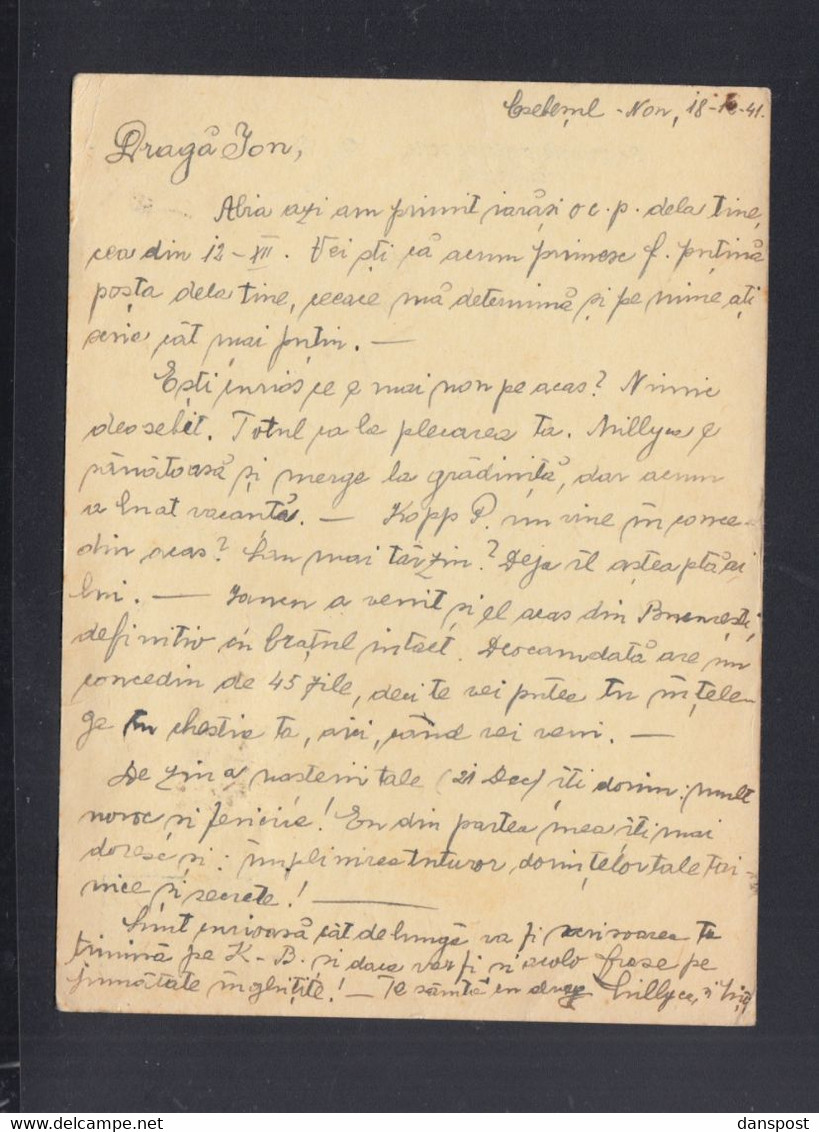 -Nou, 18- -41.
Dragă Ion,
Abia azi am primit iarăși o c.p. dela tine,
cea din 12-XII. Vei ști că acum primesc f. puțină
poșta dela tine, ceeace mă determină și pe mine ați
scrie cât mai puțin. —
Ești curios ce e mai nou pe acas? Nimic
deosebit. Totul ca la plecarea ta. Millyca e
sănătoasă și merge la grădiniță, dar acum
a luat vacanță. — Kopp P. nu vine în conce-
din acas? Sau mai târziu? Deja îl așteaptă ai
lui. — Iancu a venit și el acas din București,
definitiv cu brațul intact. Deocamdată are un
concediu de 45 zile, deci te vei putea tu înțele-
ge în chestia ta, aici, când vei veni. —
De ziua nașterii tale (21 Dec) îți dorim: mult
noroc și fericire! Eu din partea mea îți mai
doresc și: împlinirea tuturor dorințelor tale tai-
nice și secrete! —
Sunt curioasă cât de lungă va fi scrisoarea ta
trimisă pe K-B. și daca vor fi și acolo frase pe
jumătate înghițite! — Te sărută cu drag Millyca, și
danspost